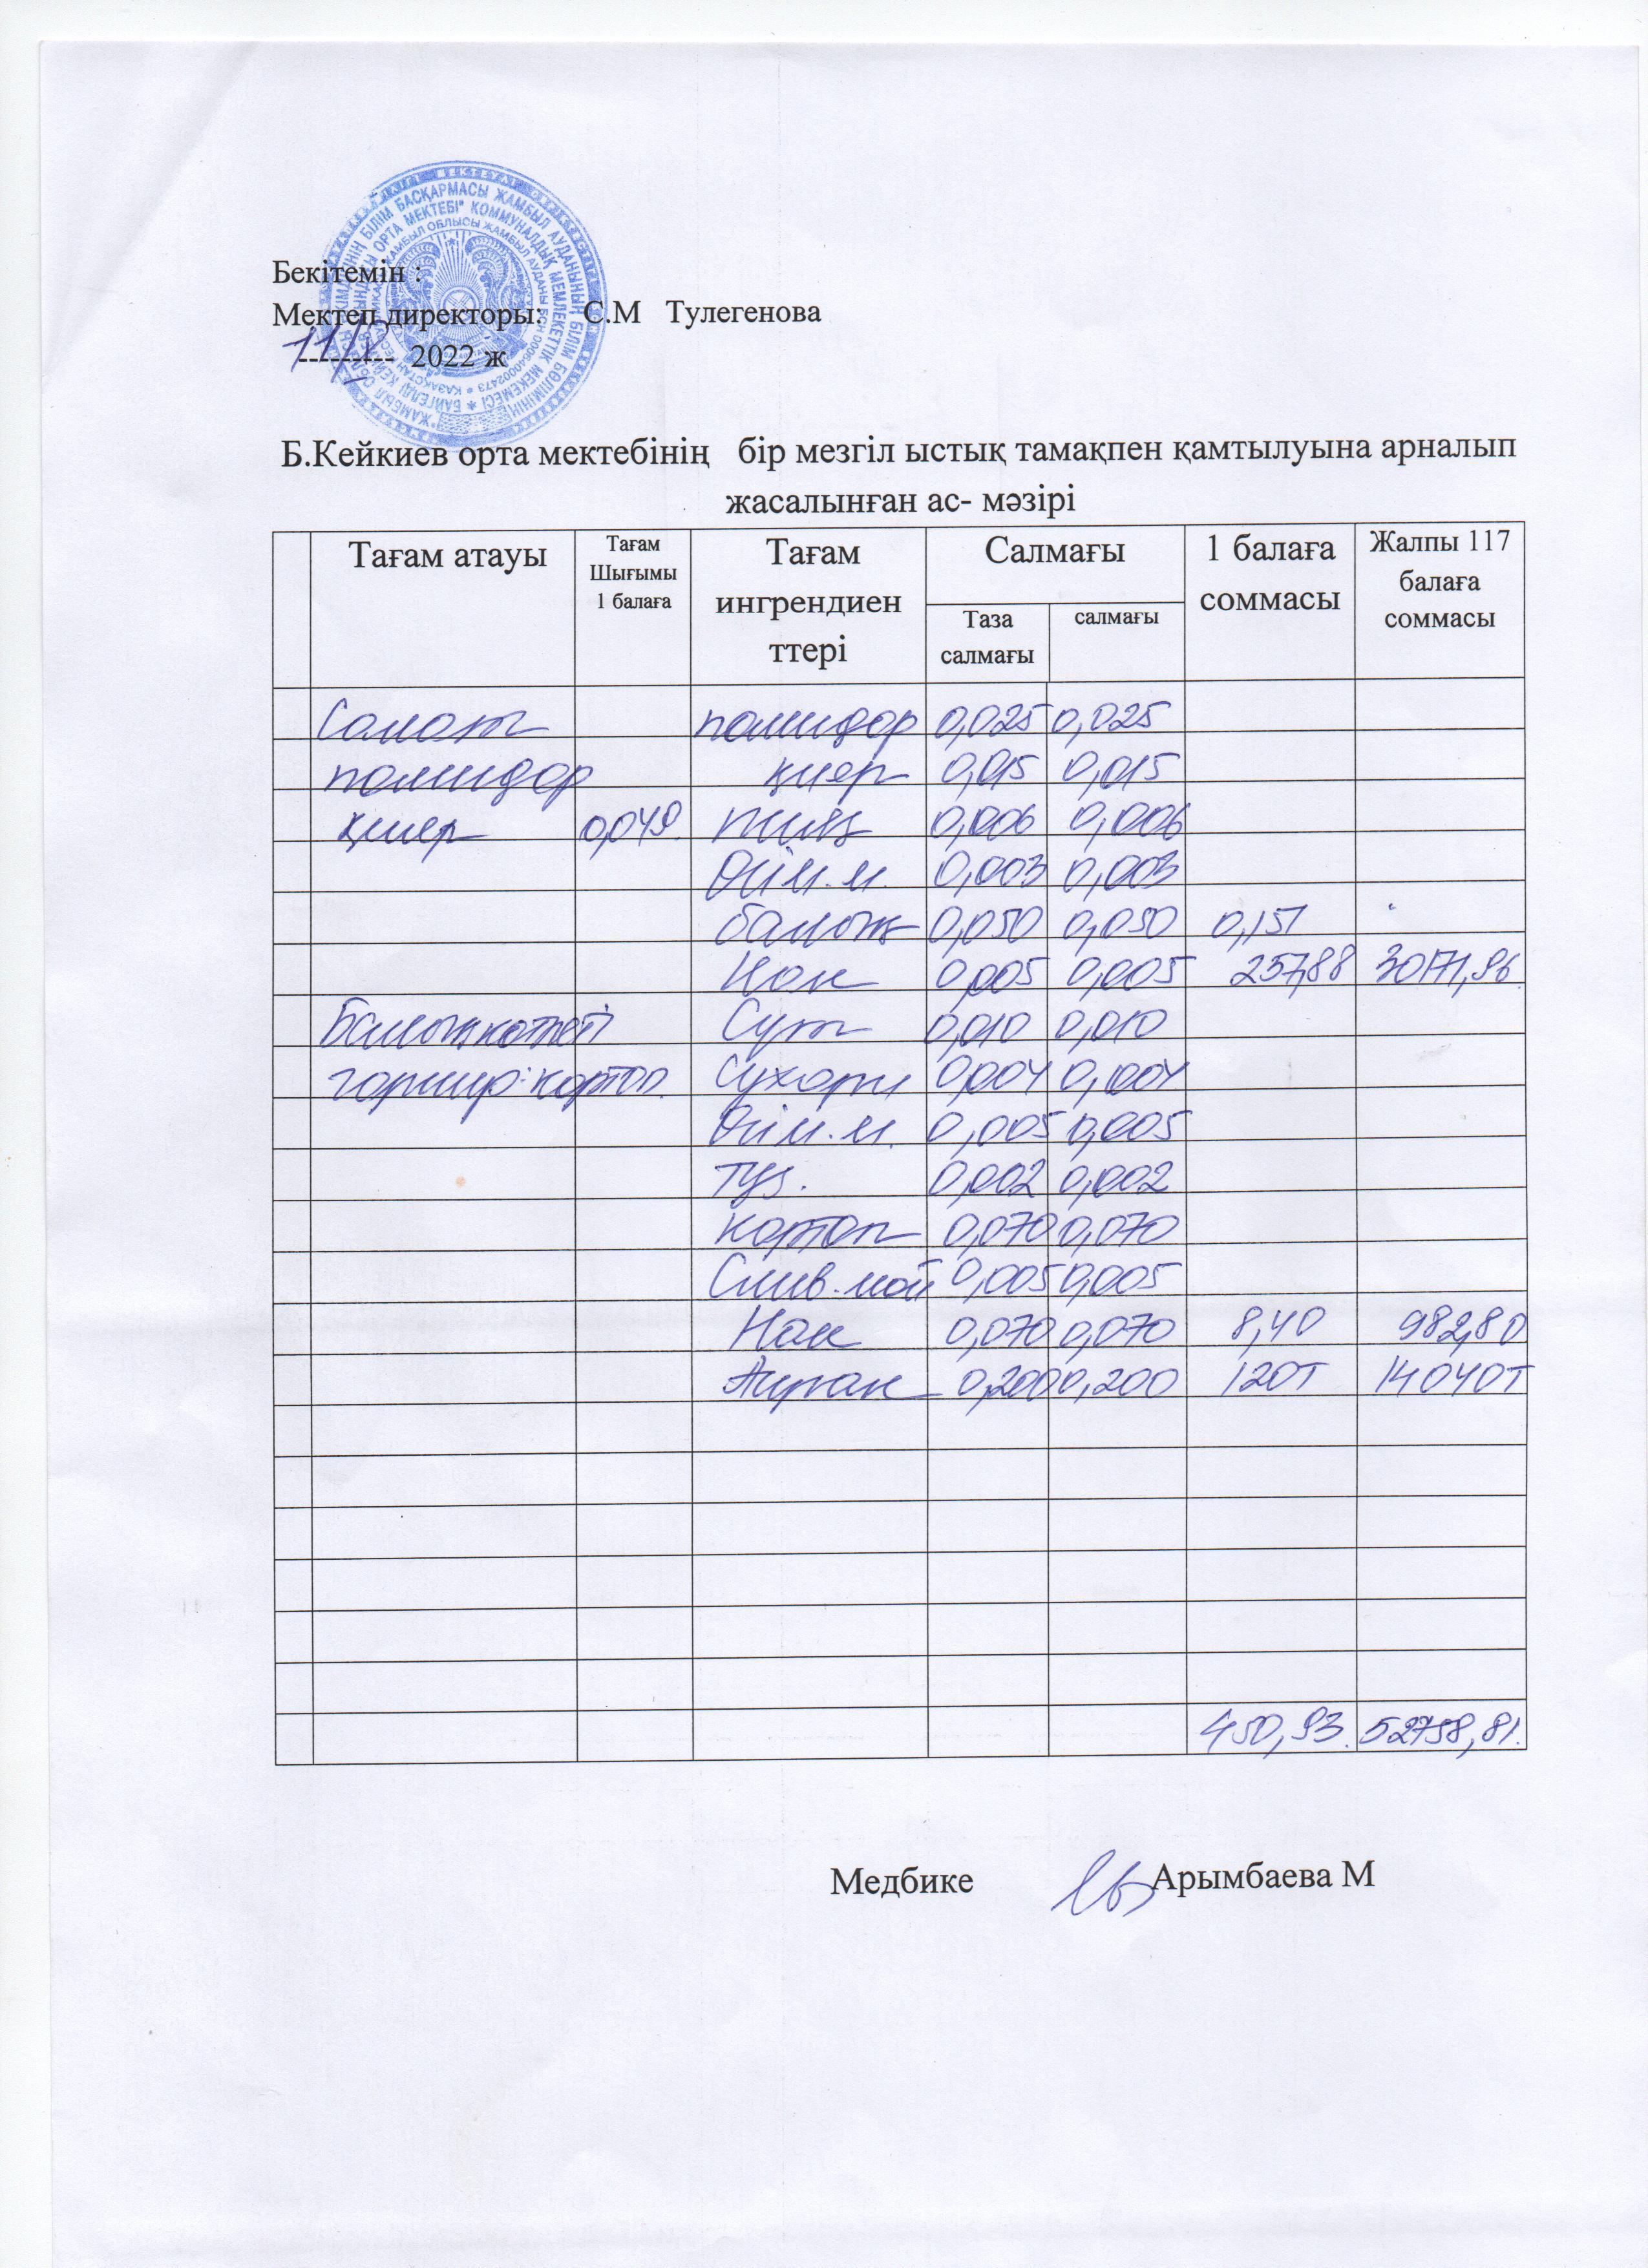 Бекітемін :
Мектеп директоры: С.М Тулегенова
--------- 2022 ж
Б.Кейкиев орта мектебінің бір мезгіл ыстық тамақпен қамтылуына арналып
жасалынған ас- мәзірі
Тағам атауы
Тағам
Шығымы
1 балаға
Тағам
ингрендиен
ттері
Салмағы
Таза
салмағы
салмағы
1 балаға
соммасы
Жалпы 117
балаға
соммасы
Салат полидор 0,025 0,025
полидор қиер 0,015 0,015
қиер 0,049. пияз 0,006 0,006
Өсім.м. 0,003 0,003
балық 0,050 0,050 0,151
Нан 0,005 0,005 257,88 30171,96
Балық котлеті Сүт 0,010 0,010
гарнир:картоп. Сухари 0,004 0,004
Өсім.м. 0,005 0,005
тұз. 0,002 0,002
картоп 0,070 0,070
Слив.май 0,005 0,005
Нан 0,070 0,070 8,40 982,80
Айран 0,200 0,200 120т 14040т
450,93. 52758,81.
Медбике Арымбаева М